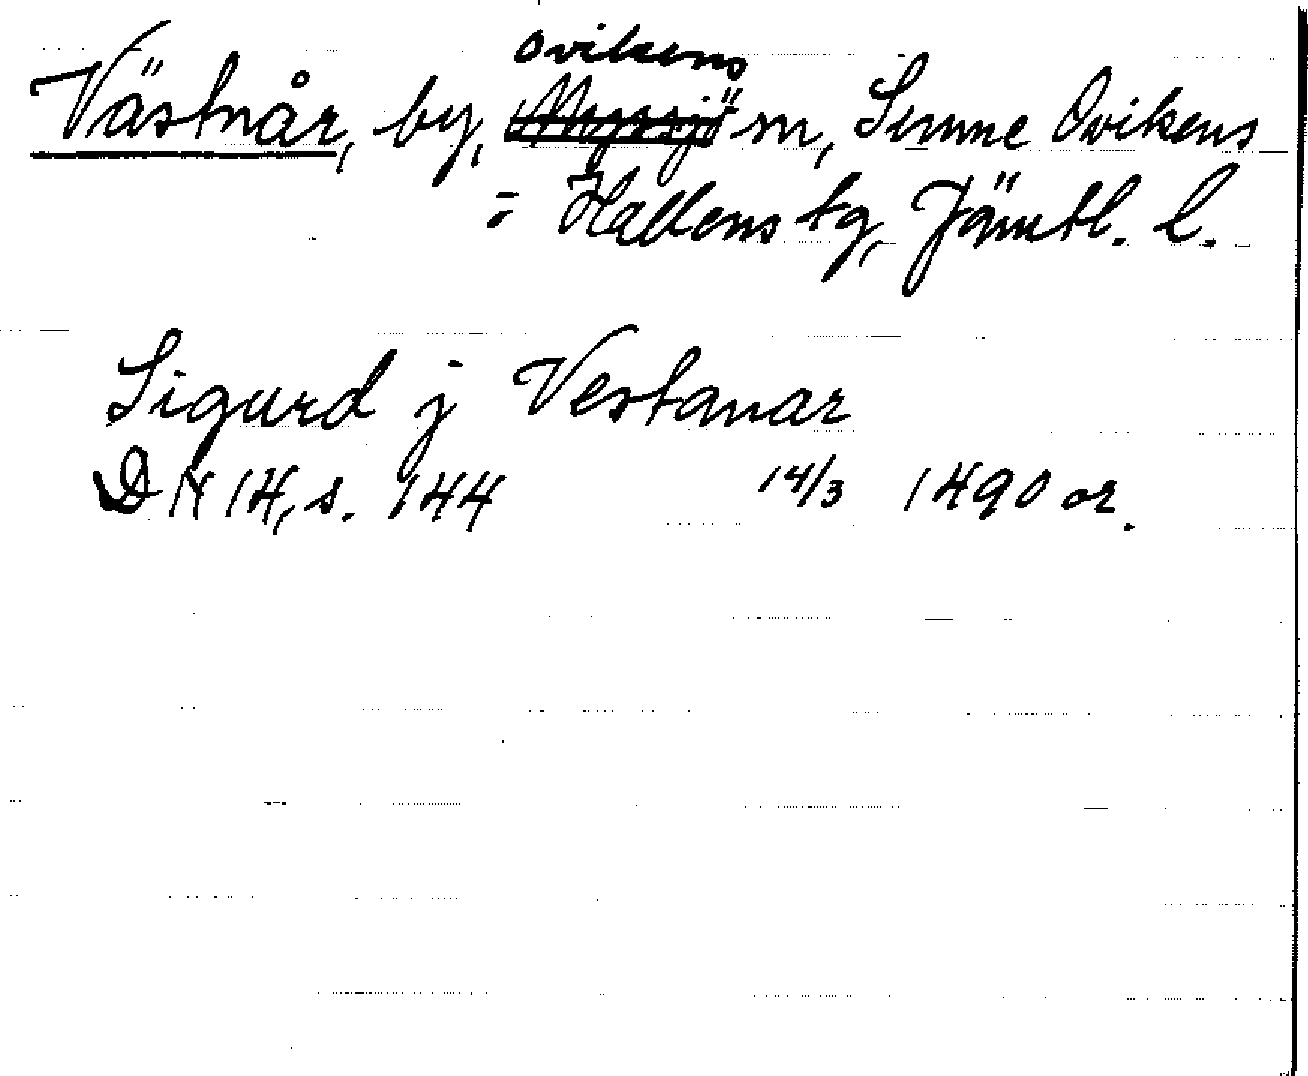 Västnår, by, Ovikens sn, Sunne Ovikens
o Hallens tg, Jämtl. l.
Sigurd j Vestanar
DN 14, s. 144 14/3 1490 or.